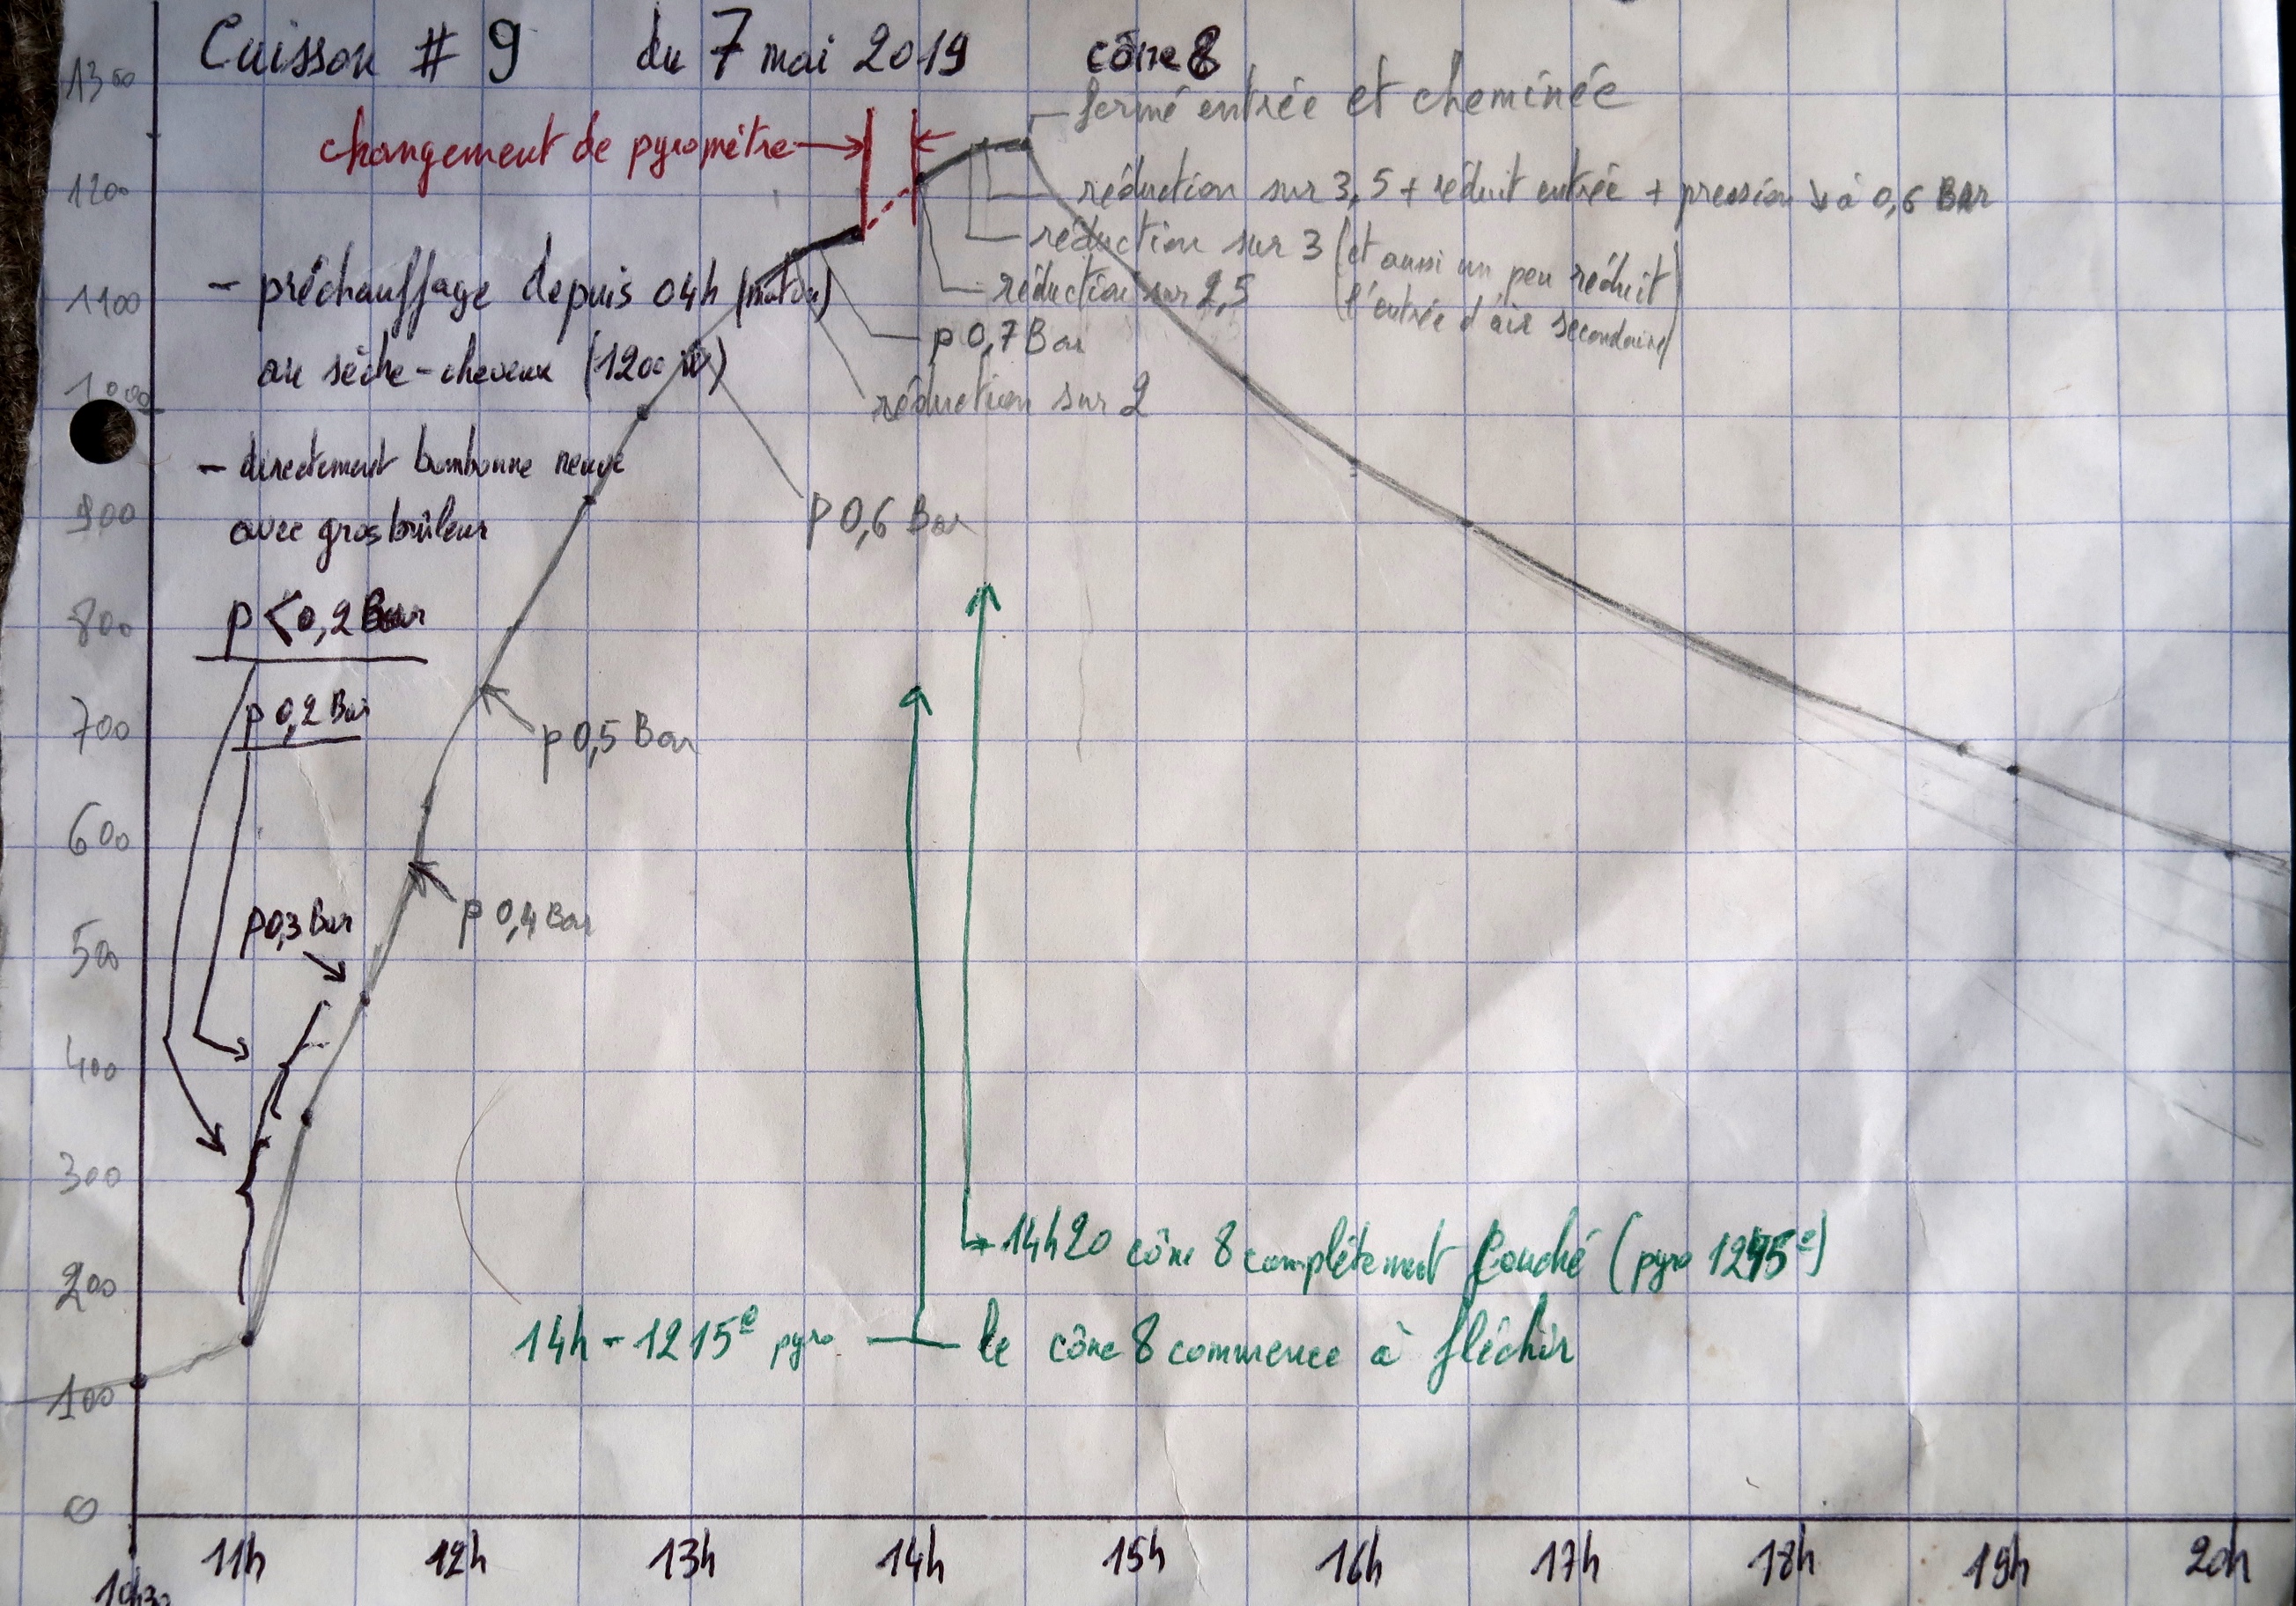 Cuisson # 9 du 7 mai 2019 cône 8
fermé entrée et cheminée
changement de pyromètre
réduction sur 3,5 + réduit entrée + pression ↘ à 0,6 Bar
réduction sur 3 (et aussi un peu réduit
l'entrée d'air secondaire)
réduction sur 2,5
p 0,7 Bar
réduction sur 2
- préchauffage depuis 04h (matin)
au sèche-cheveux (1200 W)
- directement bombonne neuve
avec gros brûleur
p 0,6 Bar
p < 0,2 Bar
p 0,2 Bar
p 0,5 Bar
p 0,3 Bar
p 0,4 Bar
14h20 cône 8 complètement couché (pyro 1245°)
14h - 1215° pyro - le cône 8 commence à fléchir
1300
1200
1100
1000
900
800
700
600
500
400
300
200
100
0
10h30 11h 12h 13h 14h 15h 16h 17h 18h 19h 20h